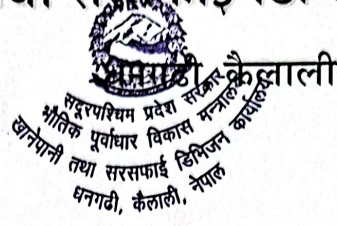 धनगढी, कैलाली
सुदूरपश्चिम प्रदेश सरकार
भौतिक पूर्वाधार विकास मन्त्रालय
खानेपानी तथा सरसफाई डिभिजन कार्यालय
धनगढी, कैलाली, नेपाल